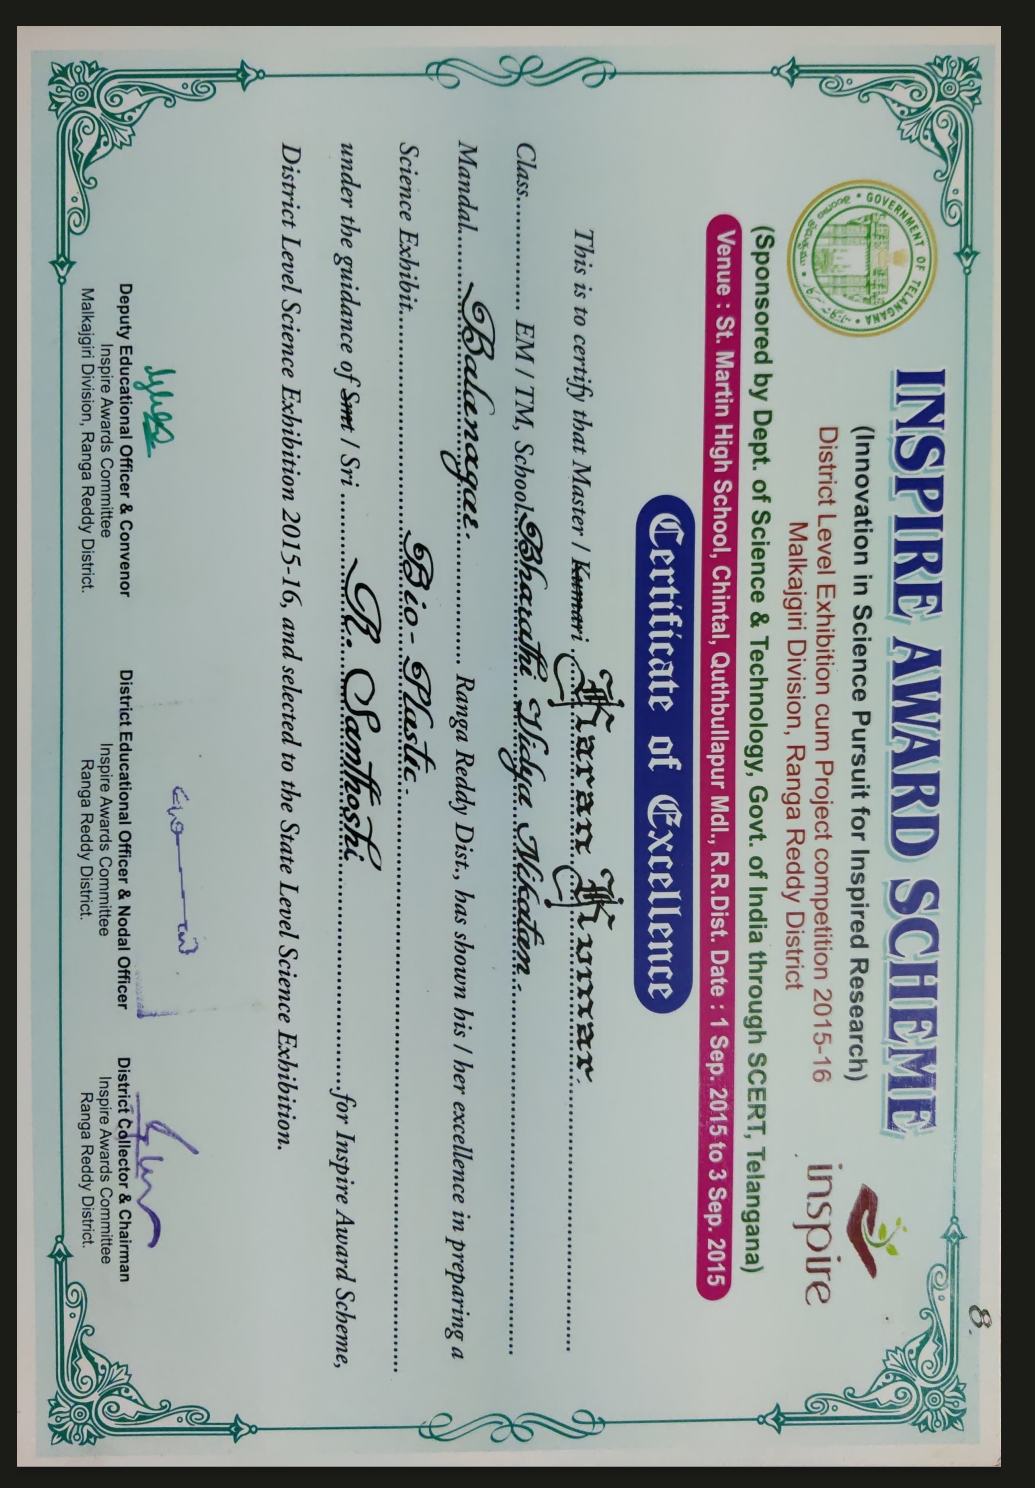 8.
INSPIRE AWARD SCHEME
(Innovation in Science Pursuit for Inspired Research)
District Level Exhibition cum Project competition 2015-16
Malkajgiri Division, Ranga Reddy District
inspire
GOVERNMENT OF TELANGANA
(Sponsored by Dept. of Science & Technology, Govt. of India through SCERT, Telangana)
Venue : St. Martin High School, Chintal, Quthbullapur Mdl., R.R.Dist. Date : 1 Sep. 2015 to 3 Sep. 2015
Certificate of Excellence
This is to certify that Master / Kumari Karan Kumar.
Class............. EM / TM, School Bharathi Vidya Nikatan.
Mandal Balanagar. Ranga Reddy Dist., has shown his / her excellence in preparing a
Science Exhibit Bio-Plastic.
under the guidance of Smt / Sri B. Santhoshi for Inspire Award Scheme,
District Level Science Exhibition 2015-16, and selected to the State Level Science Exhibition.
Deputy Educational Officer & Convenor
Inspire Awards Committee
Malkajgiri Division, Ranga Reddy District.
District Educational Officer & Nodal Officer
Inspire Awards Committee
Ranga Reddy District.
District Collector & Chairman
Inspire Awards Committee
Ranga Reddy District.